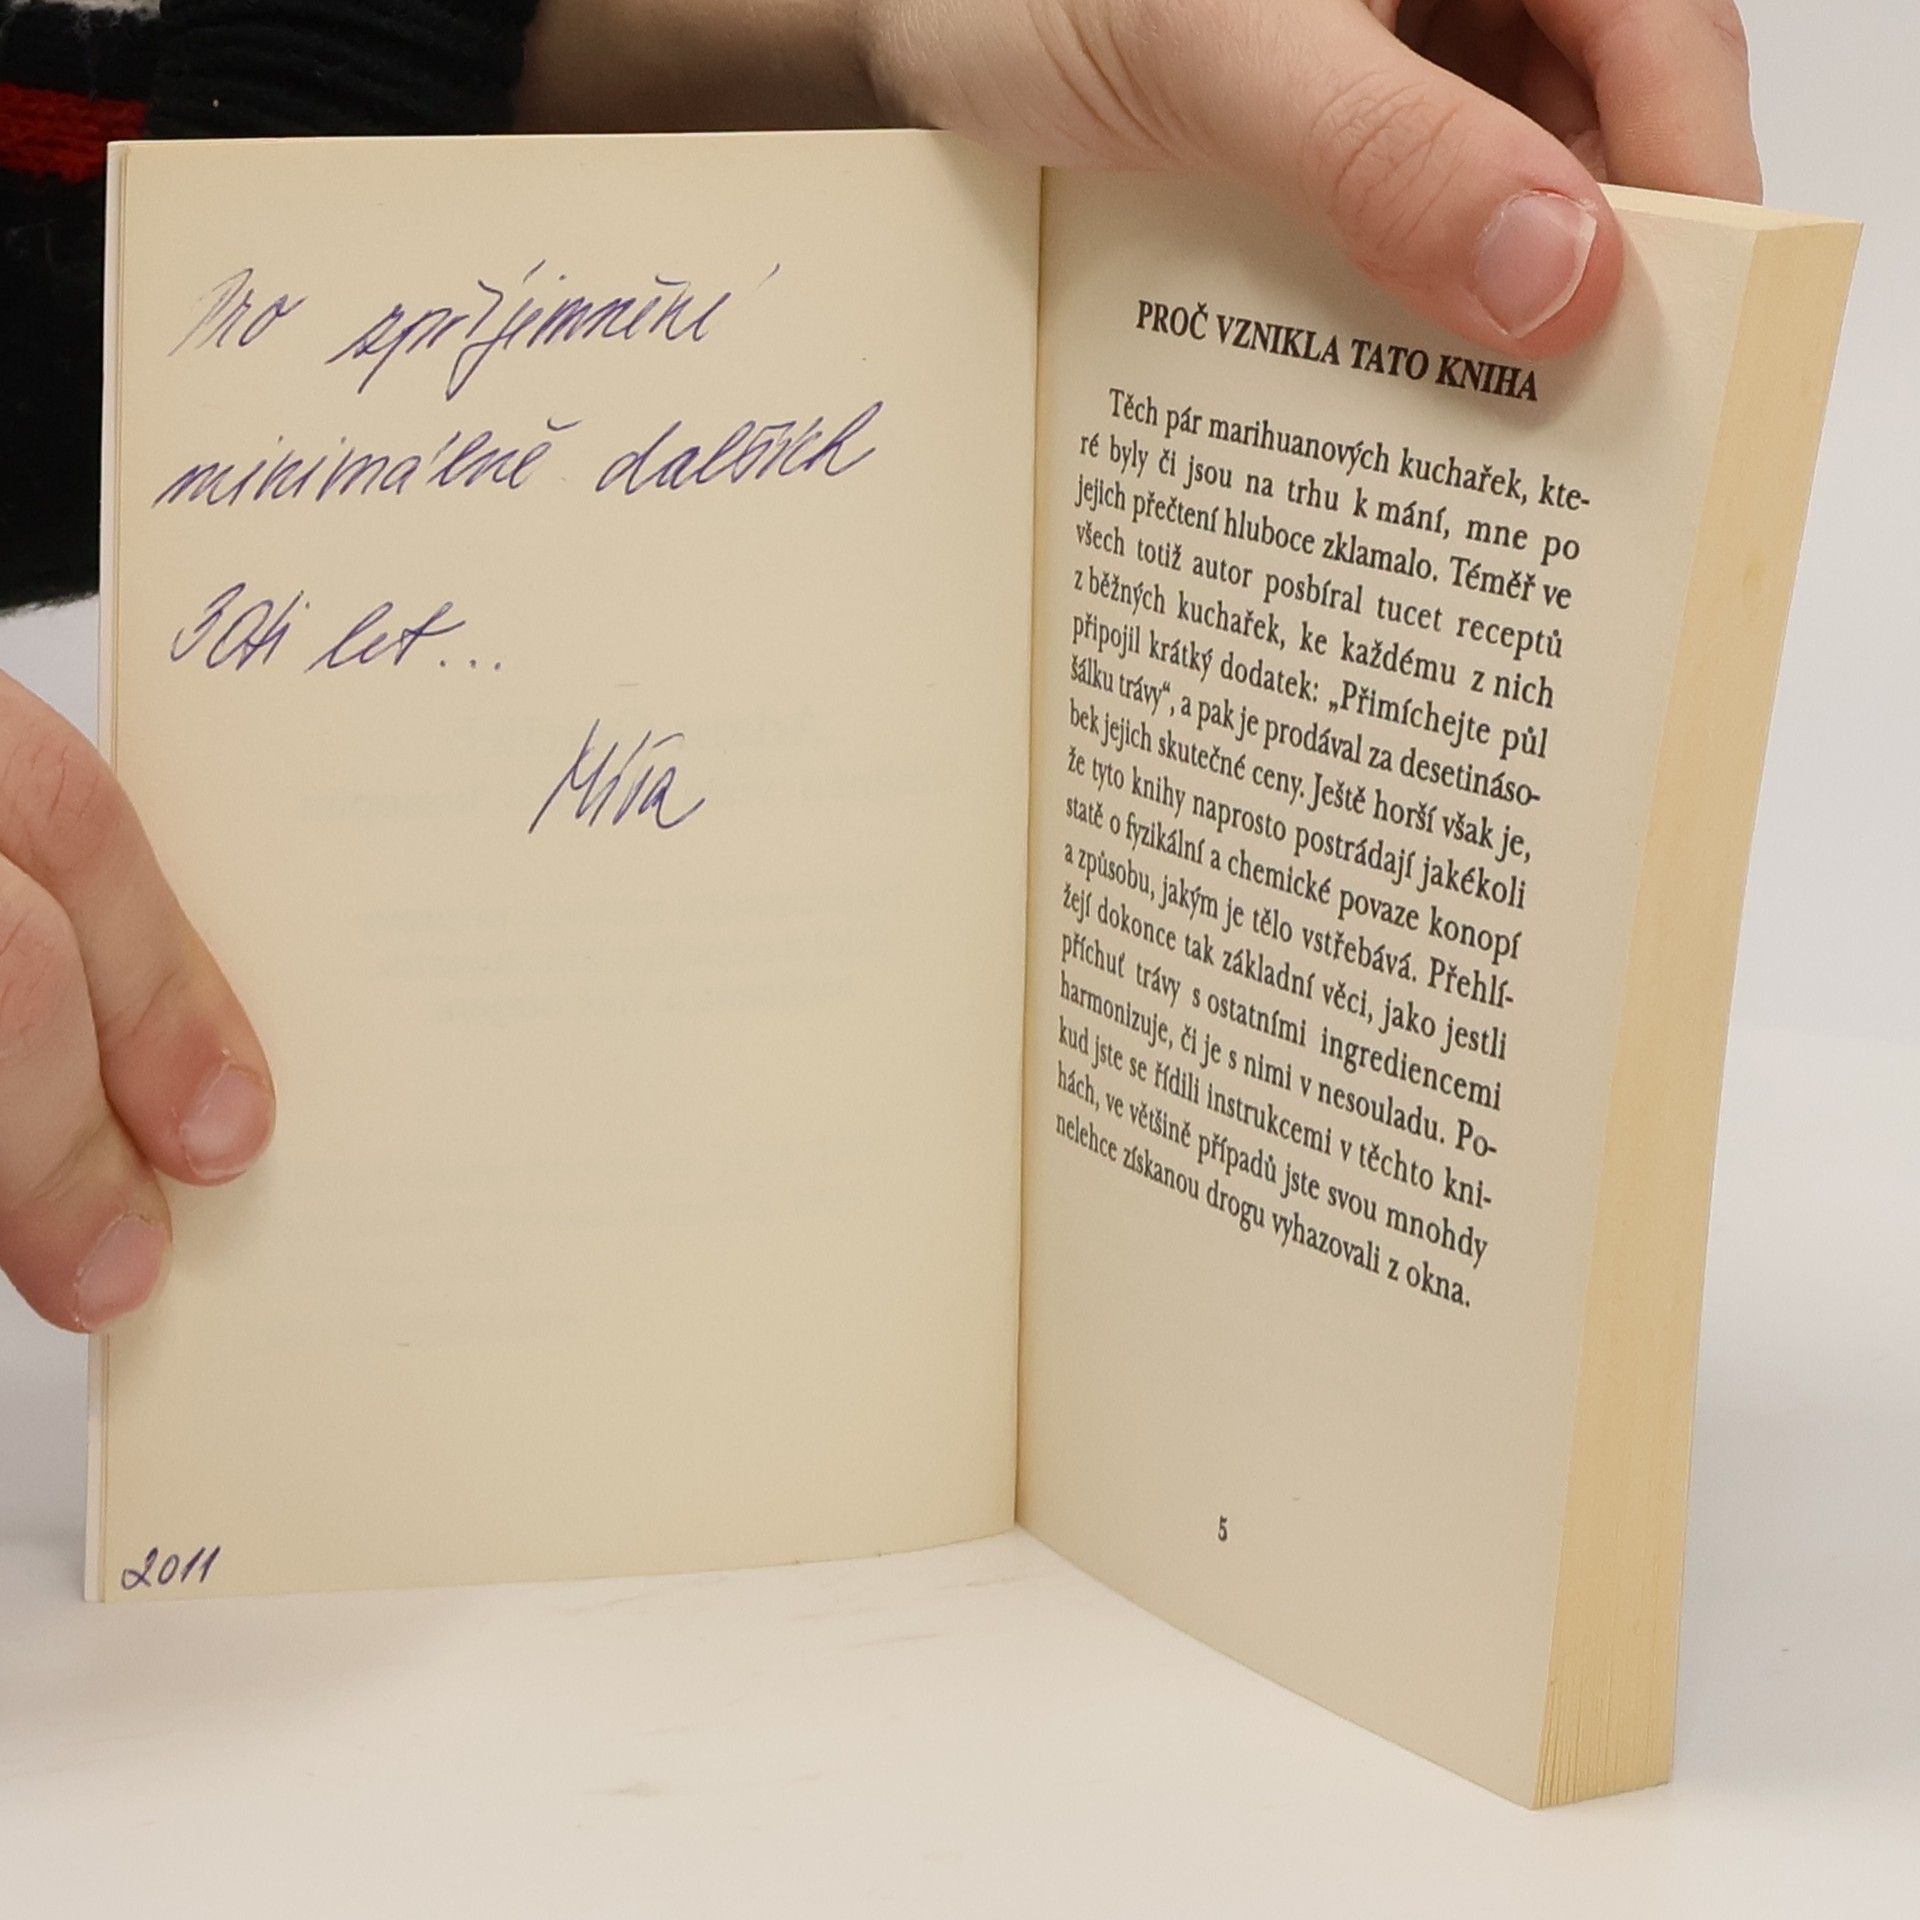 Pro zpříjemnění
minimálně dalších
30ti let...
Míra
2011
PROČ VZNIKLA TATO KNIHA
Těch pár marihuanových kuchařek, kte-
ré byly či jsou na trhu k mání, mne po
jejich přečtení hluboce zklamalo. Téměř ve
všech totiž autor posbíral tucet receptů
z běžných kuchařek, ke každému z nich
připojil krátký dodatek: „Přimíchejte půl
šálku trávy“, a pak je prodával za desetináso-
bek jejich skutečné ceny. Ještě horší však je,
že tyto knihy naprosto postrádají jakékoli
statě o fyzikální a chemické povaze konopí
a způsobu, jakým je tělo vstřebává. Přehlí-
žejí dokonce tak základní věci, jako jestli
příchuť trávy s ostatními ingrediencemi
harmonizuje, či je s nimi v nesouladu. Po-
kud jste se řídili instrukcemi v těchto kni-
hách, ve většině případů jste svou mnohdy
nelehce získanou drogu vyhazovali z okna.
5